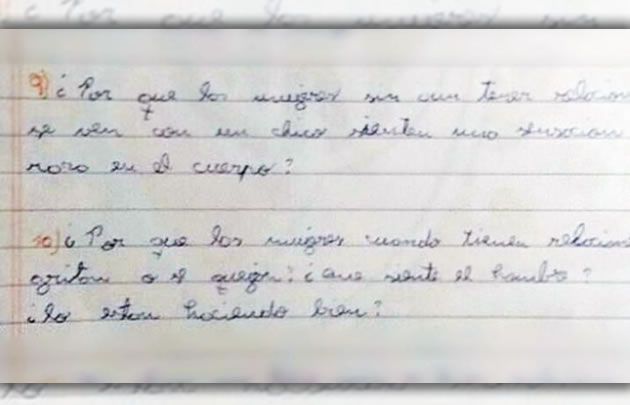 9) ¿Por que las mugeres sin aun tener relacion
se ven con un chico sienten una sensacion
rara en el cuerpo?
10) ¿Por que las mugeres cuando tienen relacione
gritan o se quejan? ¿Que siente el hombre?
¿lo estan haciendo bien?